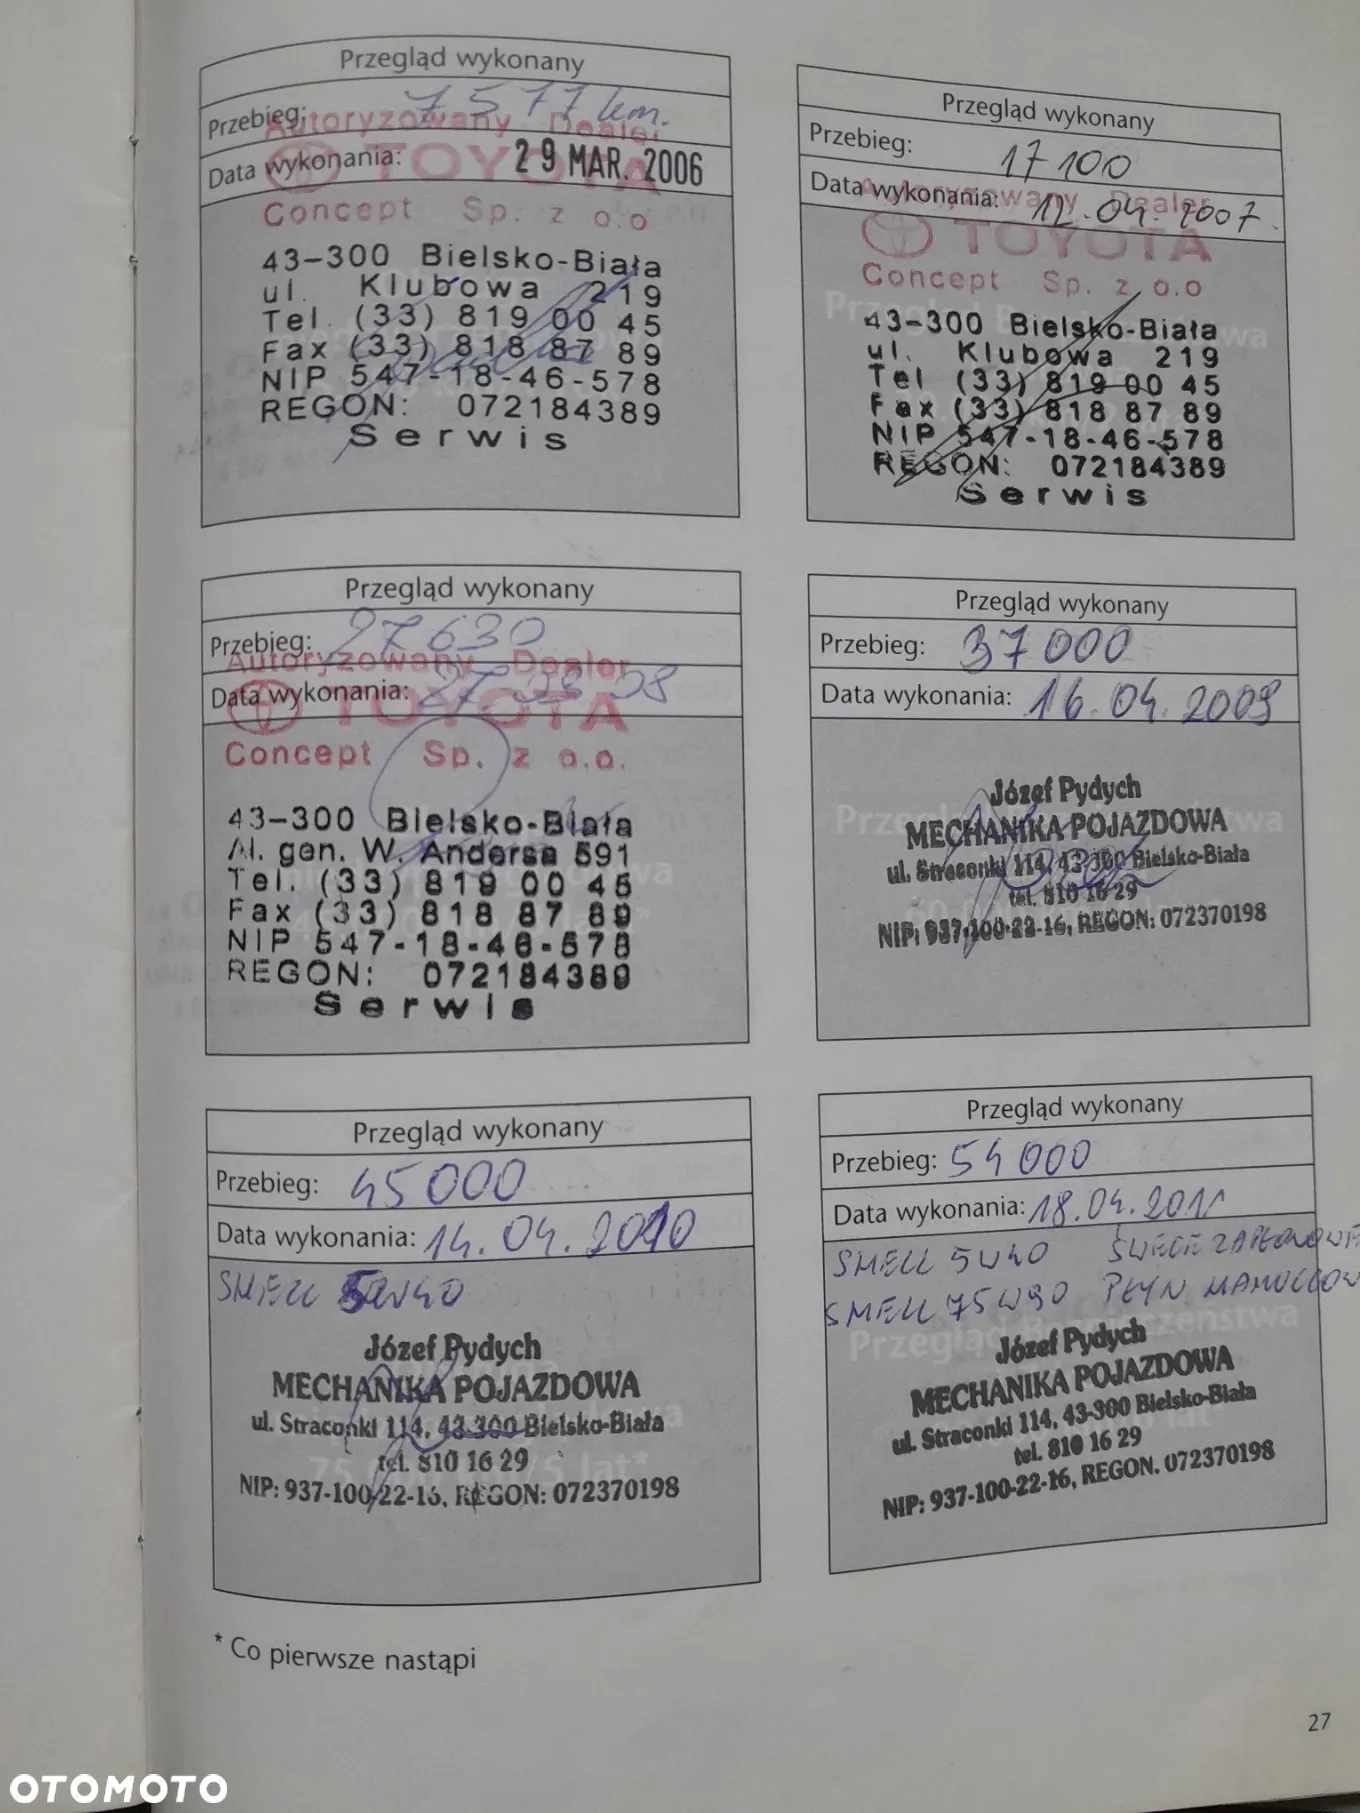 Przegląd wykonany
Przebieg: 7577 km.
Autoryzowany Dealer
Data wykonania: 29 MAR. 2006
TOYOTA
Concept Sp. z o.o
43-300 Bielsko-Biała
ul. Klubowa 219
Tel. (33) 819 00 45
Fax (33) 818 87 89
NIP 547-18-46-578
REGON: 072184389
Serwis
Przegląd wykonany
Przebieg: 17100
Data wykonania: 12.04.2007.
Autoryzowany Dealer
TOYOTA
Concept Sp. z o.o
43-300 Bielsko-Biała
ul. Klubowa 219
Tel (33) 819 00 45
Fax (33) 818 87 89
NIP 547-18-46-578
REGON: 072184389
Serwis
Przegląd wykonany
Przebieg: 27630
Autoryzowany Dealer
Data wykonania: 27. 08
TOYOTA
Concept Sp. z o.o.
43-300 Bielsko-Biała
Al. gen. W. Andersa 591
Tel. (33) 819 00 45
Fax (33) 818 87 89
NIP 547-18-46-578
REGON: 072184389
Serwis
Przegląd wykonany
Przebieg: 37000
Data wykonania: 16.04.2009
Józef Pydych
MECHANIKA POJAZDOWA
ul. Straconki 114, 43-300 Bielsko-Biała
tel. 810 16 29
NIP: 937-100-22-16, REGON: 072370198
Przegląd wykonany
Przebieg: 45000
Data wykonania: 14.04.2010
SHELL 5W40
Józef Pydych
MECHANIKA POJAZDOWA
ul. Straconki 114, 43-300 Bielsko-Biała
tel. 810 16 29
NIP: 937-100-22-16, REGON: 072370198
Przegląd wykonany
Przebieg: 54000
Data wykonania: 18.04.2011
SHELL 5W40 ŚWIECE ZAPŁONOWE
SHELL 75W90 PŁYN HAMULCOW
Józef Pydych
MECHANIKA POJAZDOWA
ul. Straconki 114, 43-300 Bielsko-Biała
tel. 810 16 29
NIP: 937-100-22-16, REGON. 072370198
* Co pierwsze nastąpi
27
OTOMOTO